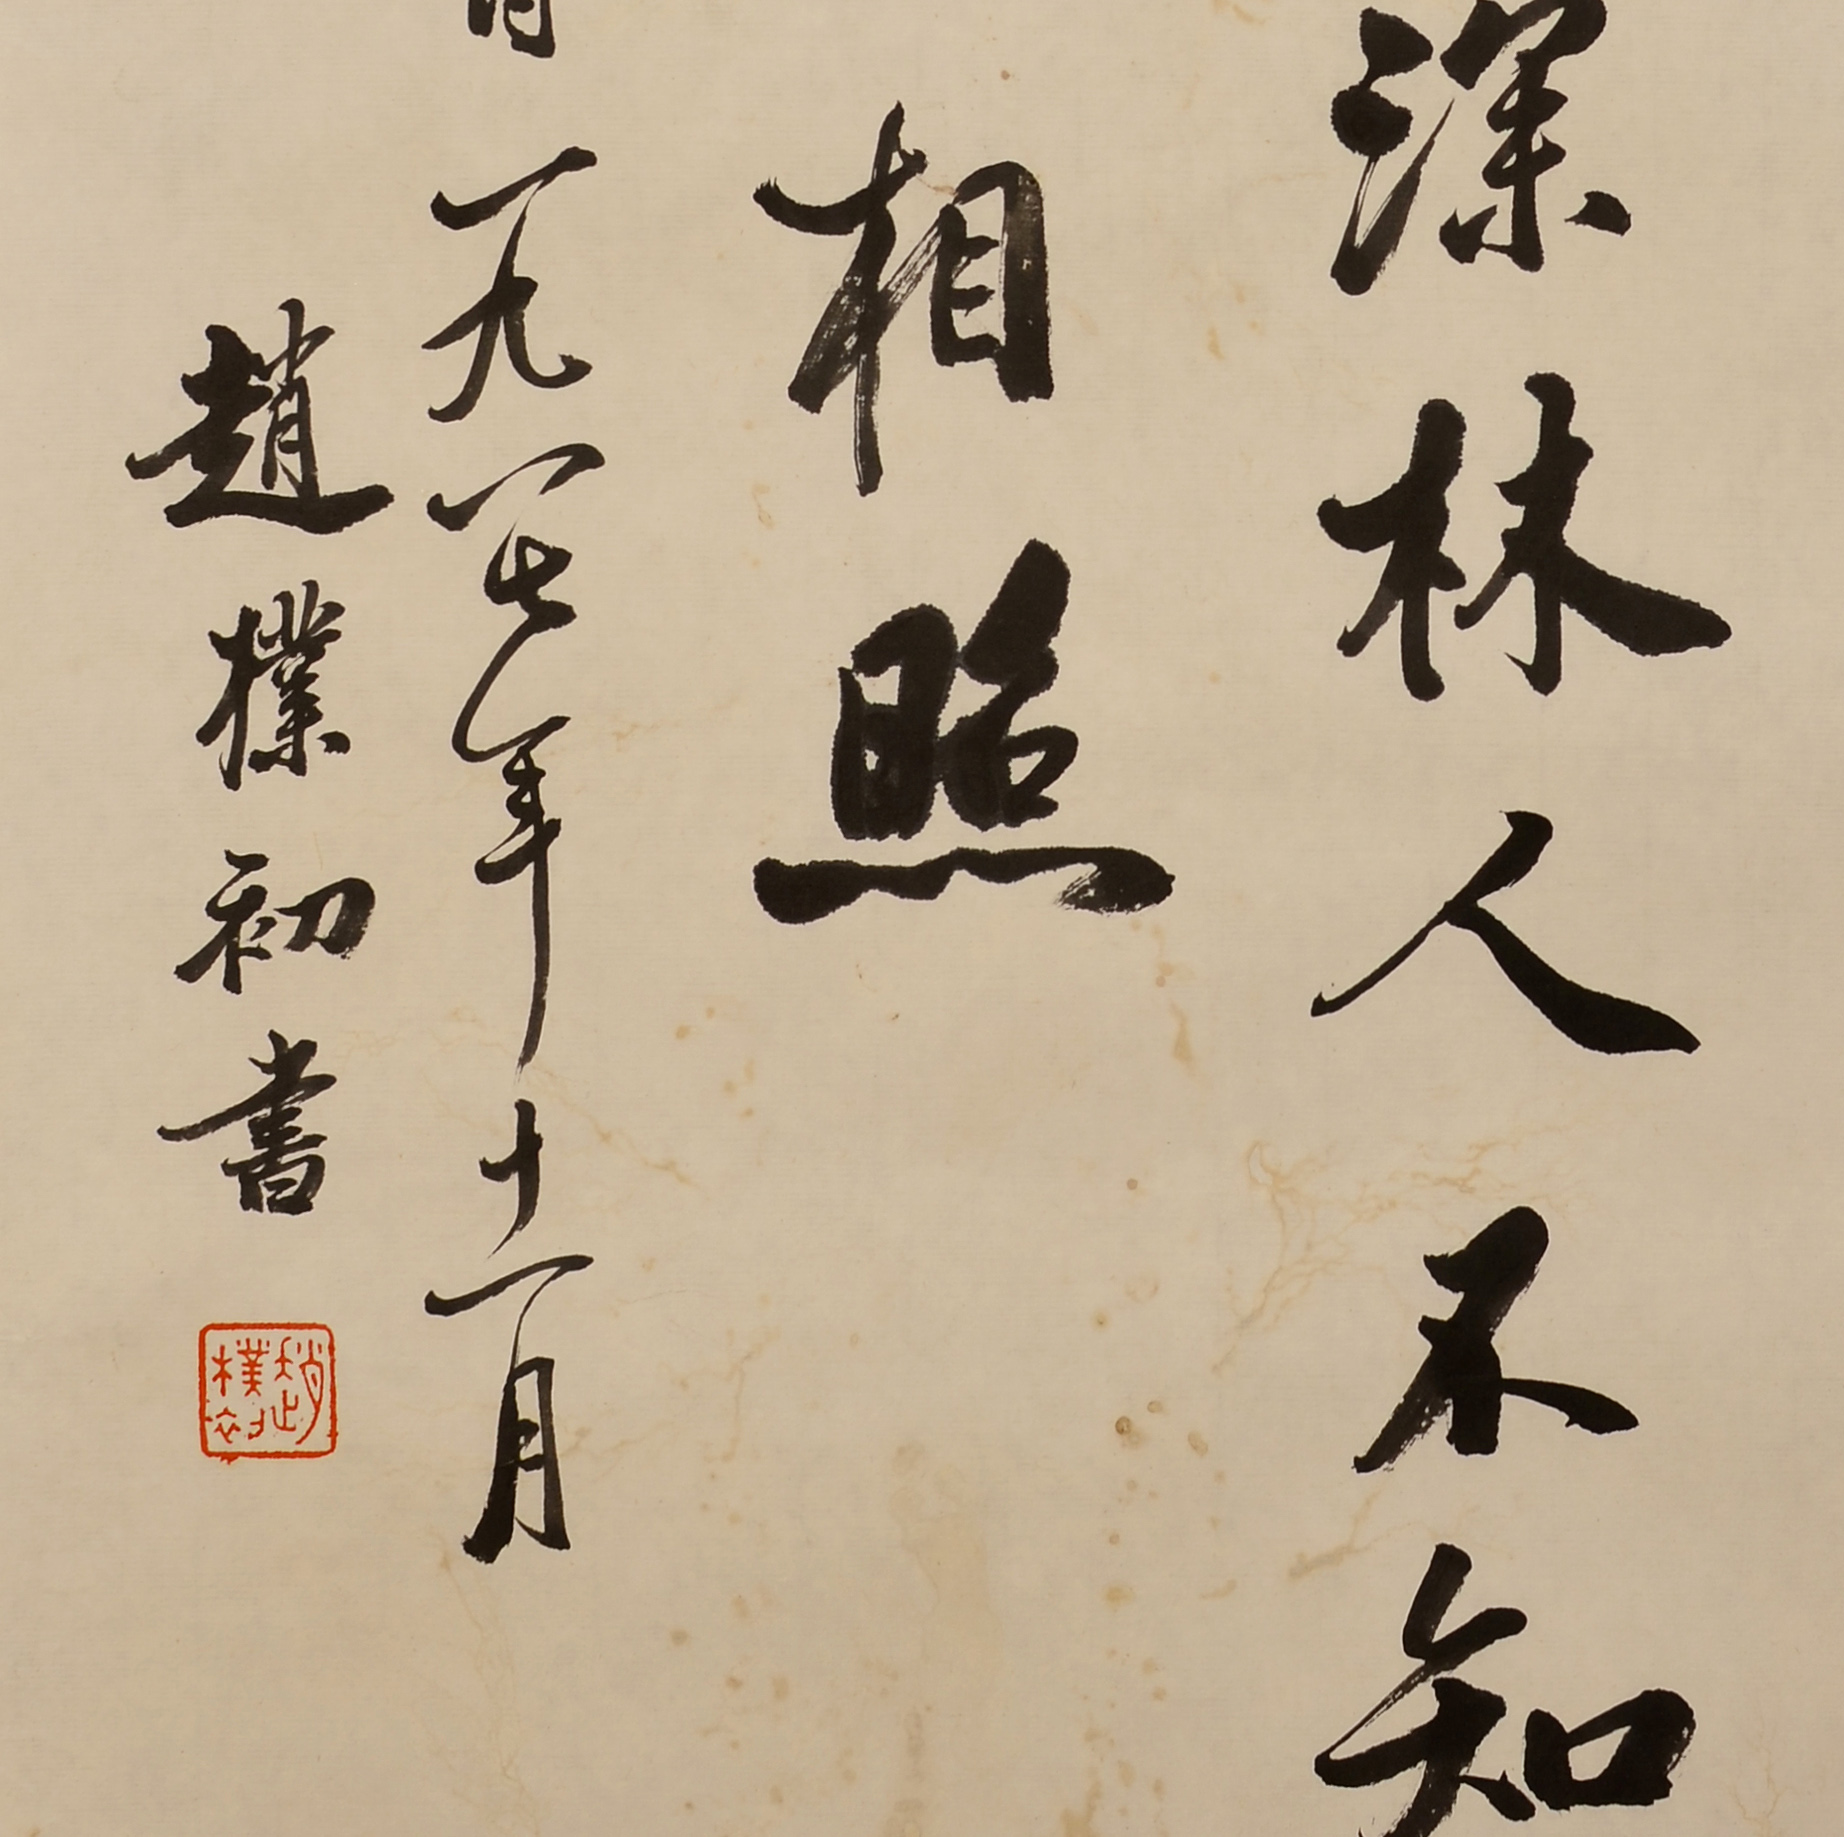 深林人不知
相照
一九八七年十一月
趙樸初書
趙樸初